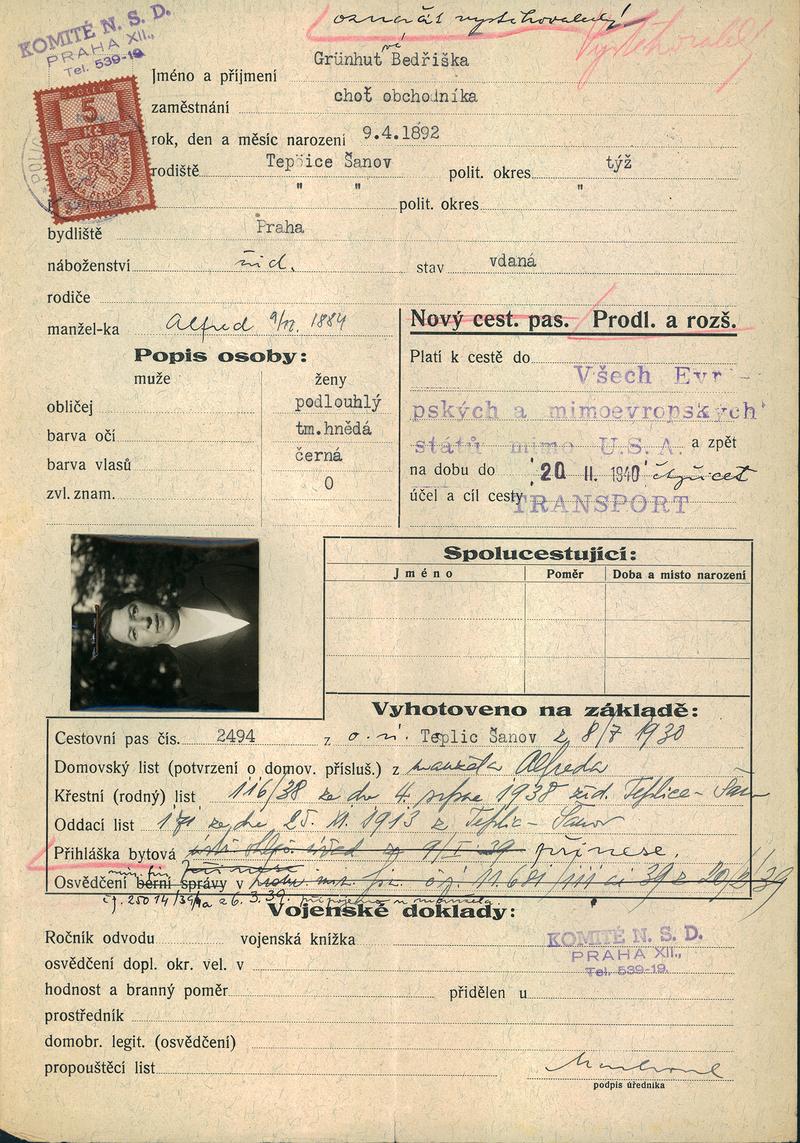 označit vystěhovalecký!
Vystěhoval!
KOMITÉ N. S. D.
PRAHA XII.,
Tel. 539-19.
KOLEK
5
Kč
Grünhutvá Bedřiška
Jméno a příjmení
choť obchodníka
zaměstnání
rok, den a měsíc narození 9.4.1892
rodiště Teplice Šanov polit. okres týž
" " polit. okres "
bydliště Praha
náboženství žid. stav vdaná
rodiče
manžel-ka Alfred 9/12. 1884
Nový cest. pas. Prodl. a rozš.
Popis osoby:
muže ženy
obličej podlouhlý
barva očí tm.hnědá
barva vlasů černá
zvl. znam. 0
Platí k cestě do
Všech Evr
pských a mimoevropských
států mimo U.S.A. a zpět
na dobu do 20 II. 1940 čtyřicet
účel a cíl cesty TRANSPORT
Spolucestující:
Jméno Poměr Doba a místo narození
Vyhotoveno na základě:
Cestovní pas čís. 2494 z o. ú. Teplic Šanov z 8/7 1930
Domovský list (potvrzení o domov. přísluš.) z manžela Alfreda
Křestní (rodný) list 116/38 ze dne 4. srpna 1938 žid. Teplice-Šanov
Oddací list 171 ze dne 25. XI. 1913 z Teplic-Šanov
Přihláška bytová 9/I 39 přinese.
Osvědčení berní správy v 11.681/III ai 39 z 20/2 39
čj. 25014/39 a 26.3.39
Vojenské doklady:
Ročník odvodu vojenská knížka
osvědčení dopl. okr. vel. v
hodnost a branný poměr přidělen u
prostředník
domobr. legit. (osvědčení)
propouštěcí list
KOMITÉ N. S. D.
PRAHA XII.,
Tel. 539-19.
podpis úředníka